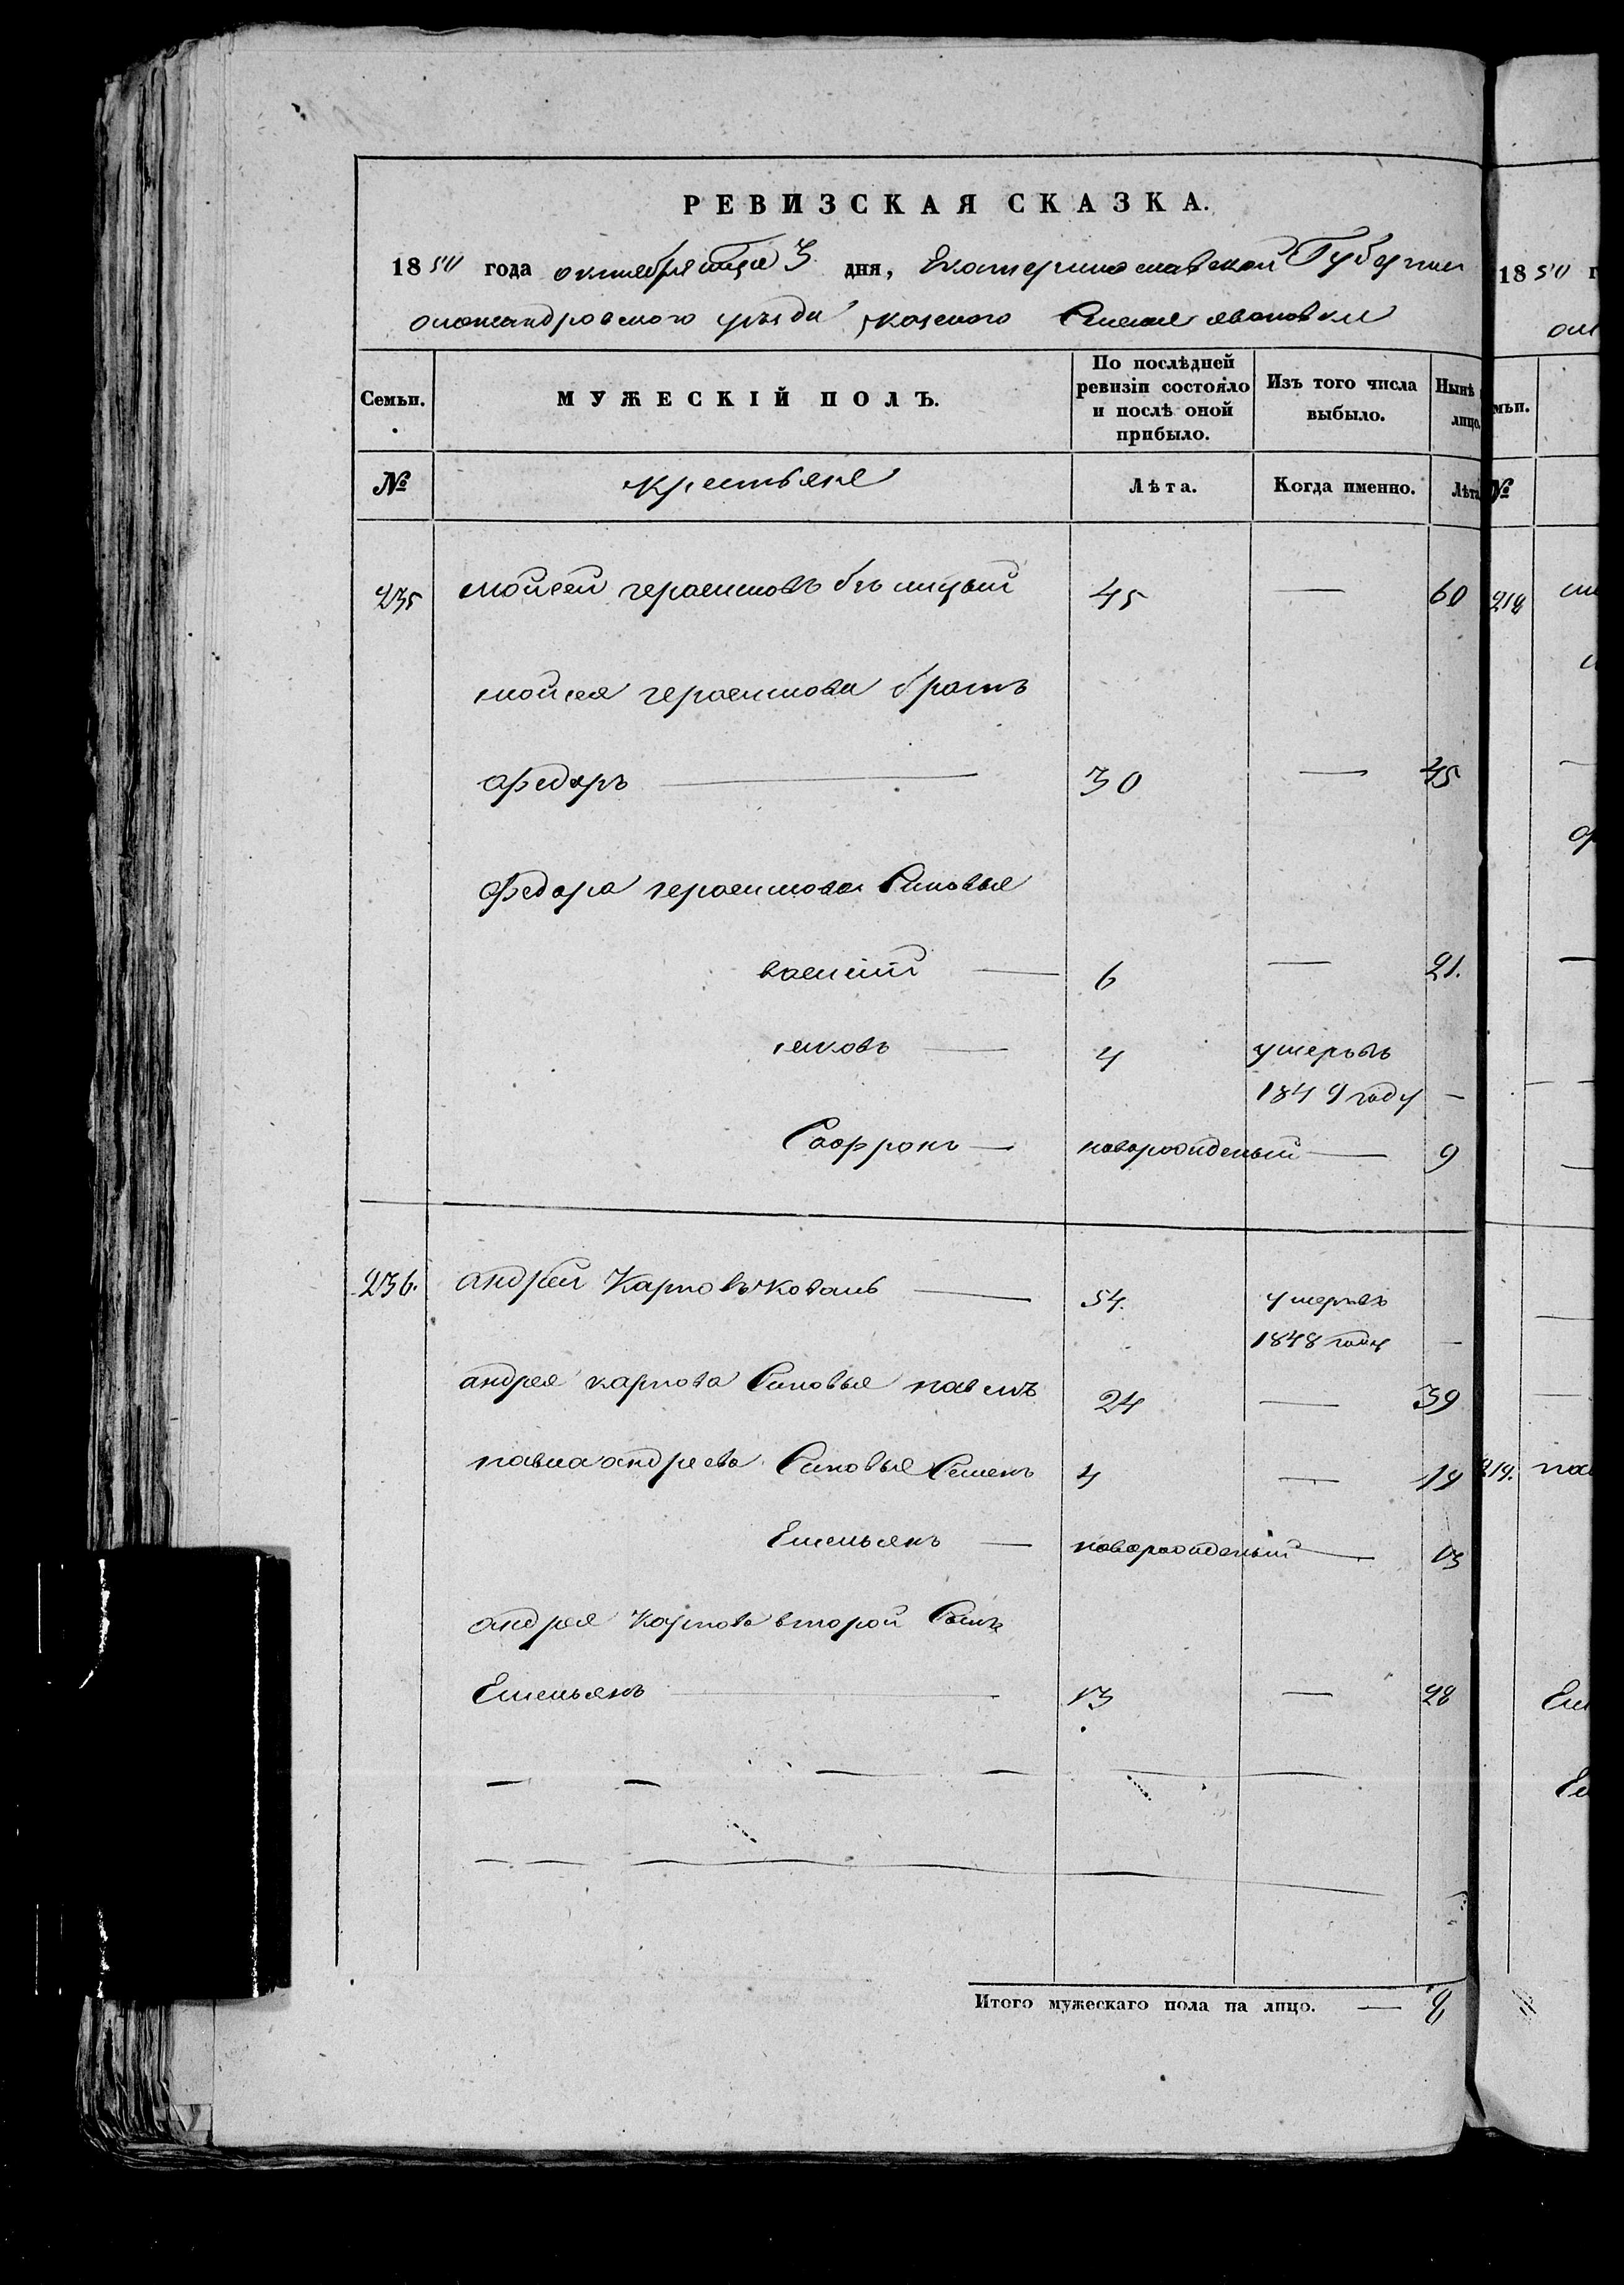 РЕВИЗСКАЯ СКАЗКА.
1850 года октября мца 3 дня, Екатеринославской Губернии
олександровского уезда казеного Селения ивановки
Семьи.
МУЖЕСКІЙ ПОЛЪ.
По послѣдней ревизіи состояло и послѣ оной прибыло.
Изъ того числа выбыло.
Нынѣ
лицо.
№
крестьяне
Лѣта.
Когда именно.
Лѣта
235 мойсей герасимовъ 45 — 60
мойсея герасимова братъ
федоръ — 30 — 45
Федора герасимова Синовья
василій — 6 — 21.
яковъ — 4 умеръ въ
1849 году —
Софронъ — новорожденый — 9
236. андрей Карповъ Коваль — 54. умеръ въ
1848 году —
андрея карпова Синовья павелъ 24 — 39
павла андреева Синовья Семенъ 4 — 19
Емельянъ — новорожденый — 13
андрея Карпова второй Сынъ
Емельянъ — 13 — 28
Итого мужескаго пола на лицо. — 8
1850 г
мьи.
№
218
219. пав